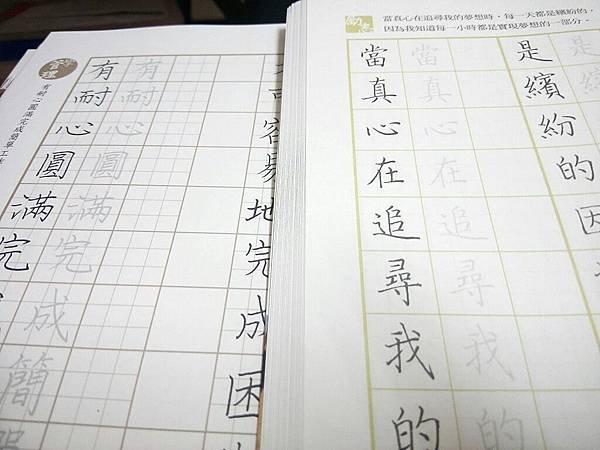 管理
有耐心圓滿完成簡單工
有耐心圓滿完
有耐心圓滿完成簡
可容易地完成困
勵志
當真心在追尋我的夢想時，每一天都是繽紛的，
因為我知道每一小時都是實現夢想的一部分。
當真心在追尋我的
當真心在追尋我的
是繽紛的因
是